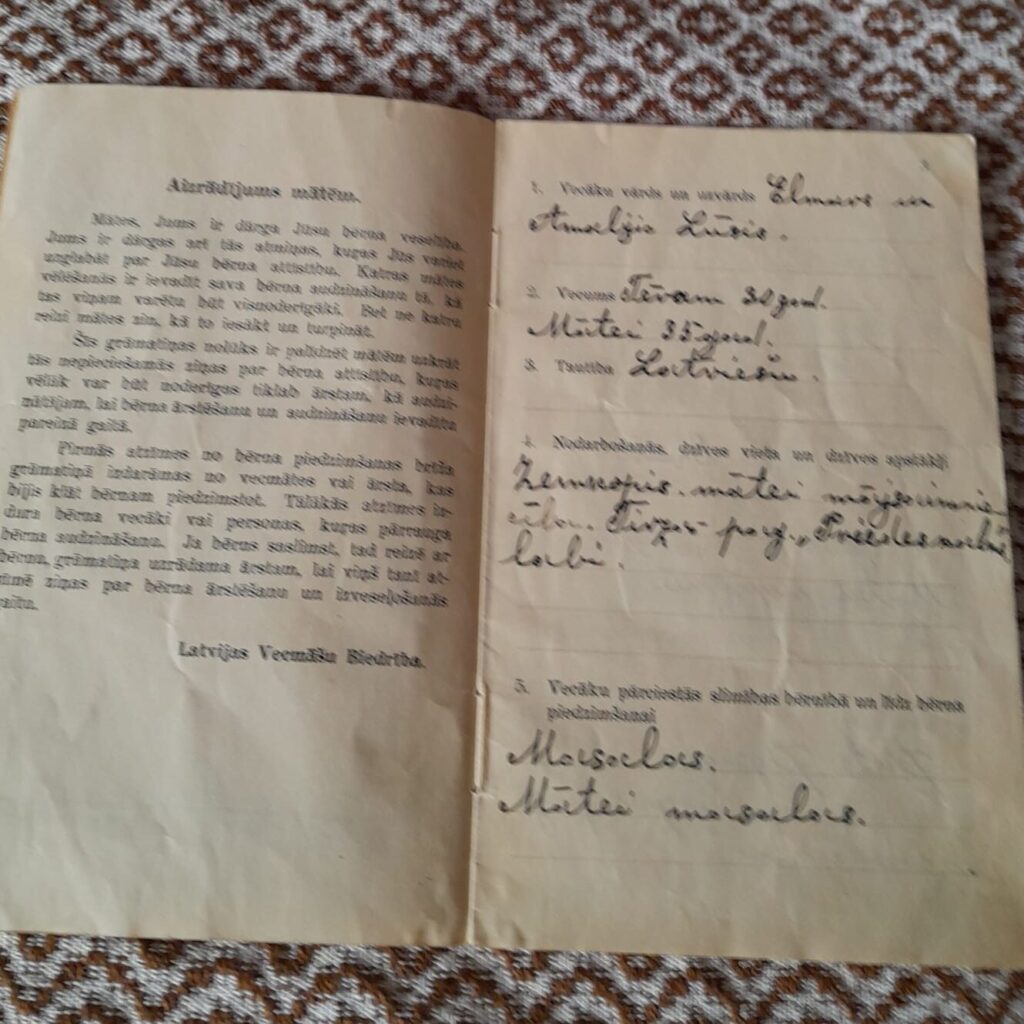 Aizrādījums mātēm.
Mātes, Jums ir dārga Jūsu bērna veselība.
Jums ir dārgas arī tās atmiņas, kuŗas Jūs variet
uzglabāt par Jūsu bērna attīstību. Katras mātes
vēlēšanās ir ievadīt sava bērna audzināšanu tā, kā
tas viņam varētu būt visnoderīgāki. Bet ne katru
reizi mātes zin, kā to iesākt un turpināt.
Šīs grāmatiņas nolūks ir palīdzēt mātēm uzkrāt
tās nepieciešamās ziņas par bērna attīstību, kuŗas
vēlāk var būt noderīgas tiklab ārstam, kā audzi-
nātājam, lai bērna ārstēšanu un audzināšanu ievadītu
pareizā gaitā.
Pirmās atzīmes no bērna piedzimšanas brīža
grāmatiņā izdarāmas no vecmātes vai ārsta, kas
bijis klāt bērnam piedzimstot. Tālākās atzīmes iz-
dara bērna vecāki vai personas, kuŗas pārrauga
bērna audzināšanu. Ja bērns saslimst, tad reizē ar
bērnu, grāmatiņa uzrādama ārstam, lai viņš tanī at-
zīmē ziņas par bērna ārstēšanu un izveseļošanās
gaitu.
Latvijas Vecmāšu Biedrība.
3
1. Vecāku vārds un uzvārds Elmars un
Amalija Lūsis.
2. Vecums Tēvam 30 gad.
Mātei 35 gad.
3. Tautība Latvieši.
4. Nodarbošanās, dzīves vieta un dzīves apstākļi
Zemkopis. mātei mājsaimnie-
cība. Tirzas pag. „Priedesnarbūl"
labi.
5. Vecāku pārciestās slimības bērnībā un līdz bērna
piedzimšanai
Masalas.
Mātei masalas.